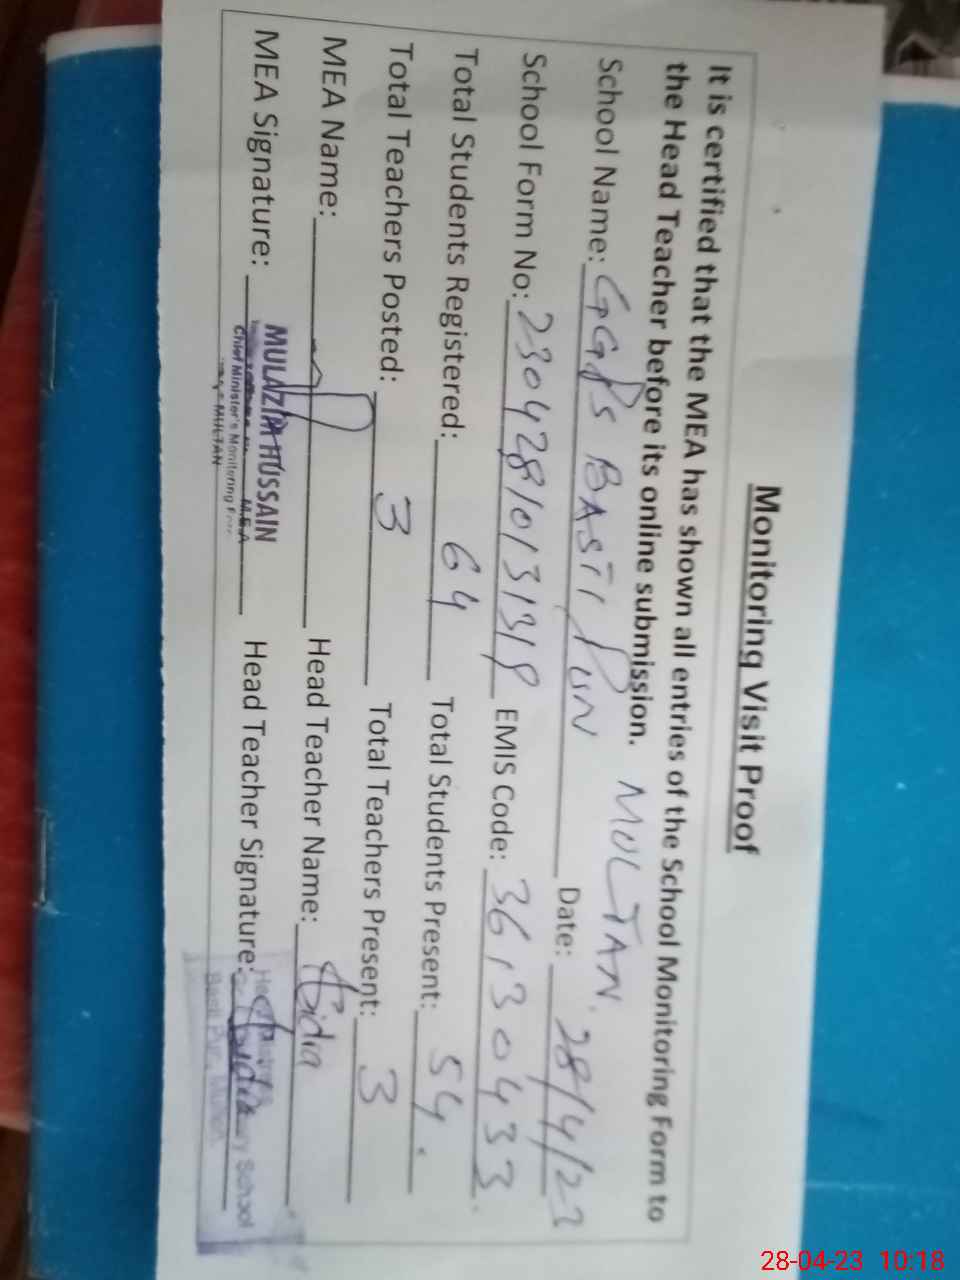 Monitoring Visit Proof
It is certified that the MEA has shown all entries of the School Monitoring Form to
the Head Teacher before its online submission. MULTAN.
School Name: GGPS BASTI PUN Date: 28/4/23
School Form No: 230428101313 EMIS Code: 36130433
Total Students Registered: 64 Total Students Present: 54.
Total Teachers Posted: 3 Total Teachers Present: 3
MEA Name: Head Teacher Name: Abidia
MEA Signature: Head Teacher Signature:
MULAZIM HUSSAIN
M.E.A
Chief Minister's Monitoring Force
MULTAN
School
28-04-23 10:18